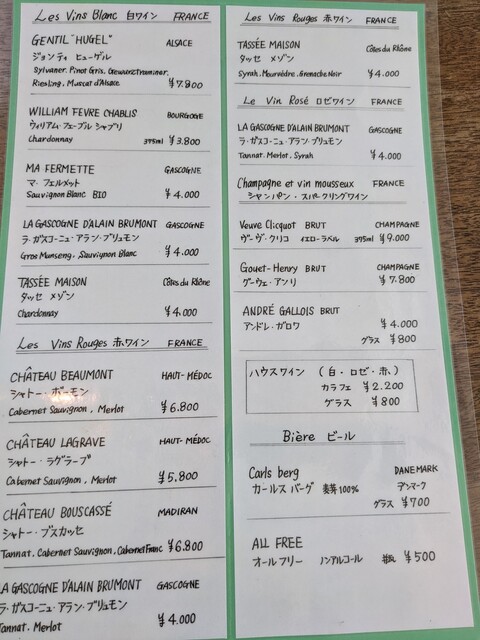 Les Vins Blanc 白ワイン FRANCE
GENTIL "HUGEL" ALSACE
ジョンティ ヒューゲル
Sylvaner, Pinot Gris, Gewurztraminer,
Riesling, Muscat d'Alsace ¥7.800
WILLIAM FEVRE CHABLIS BOURGOGE
ウィリアム・フェーブル シャブリ
Chardonnay 375ml ¥3.800
MA FERMETTE GASCOGNE
マ・フェルメット
Sauvignon Blanc BIO ¥4.000
LA GASCOGNE D'ALAIN BRUMONT GASCOGNE
ラ・ガスコーニュ・アラン・ブリュモン
Gros Manseng, Sauvignon Blanc ¥4.000
TASSÉE MAISON Côtes du Rhône
タッセ メゾン
Chardonnay ¥4.000
Les Vins Rouges 赤ワイン FRANCE
CHÂTEAU BEAUMONT HAUT-MÉDOC
シャトー・ボーモン
Cabernet Sauvignon, Merlot ¥6.800
CHÂTEAU LAGRAVE HAUT-MÉDOC
シャトー・ラグラーブ
Cabernet Sauvignon, Merlot ¥5.800
CHÂTEAU BOUSCASSÉ MADIRAN
シャトー・ブスカッセ
Tannat, Cabernet Sauvignon, Cabernet Franc ¥6.800
LA GASCOGNE D'ALAIN BRUMONT GASCOGNE
ラ・ガスコーニュ・アラン・ブリュモン
Tannat, Merlot ¥4.000
Les Vins Rouges 赤ワイン FRANCE
TASSÉE MAISON Côtes du Rhône
タッセ メゾン
Syrah, Mourvèdre, Grenache Noir ¥4.000
Le Vin Rosé ロゼワイン FRANCE
LA GASCOGNE D'ALAIN BRUMONT GASCOGNE
ラ・ガスコーニュ・アラン・ブリュモン
Tannat, Merlot, Syrah ¥4.000
Champagne et vin mousseux FRANCE
シャンパン・スパークリングワイン
Veuve Clicquot BRUT CHAMPAGNE
ヴーヴ・クリコ イエローラベル 375ml ¥9.000
Gouet-Henry BRUT CHAMPAGNE
グーウェ・アンリ ¥7.800
ANDRÉ GALLOIS BRUT
アンドレ・ガロワ ¥4.000
グラス ¥800
ハウスワイン (白・ロゼ・赤)
カラフェ ¥2.200
グラス ¥800
Bière ビール
Carls berg DANEMARK
カールス バーグ 麦芽100% デンマーク
グラス ¥700
ALL FREE
オールフリー ノンアルコール 瓶 ¥500